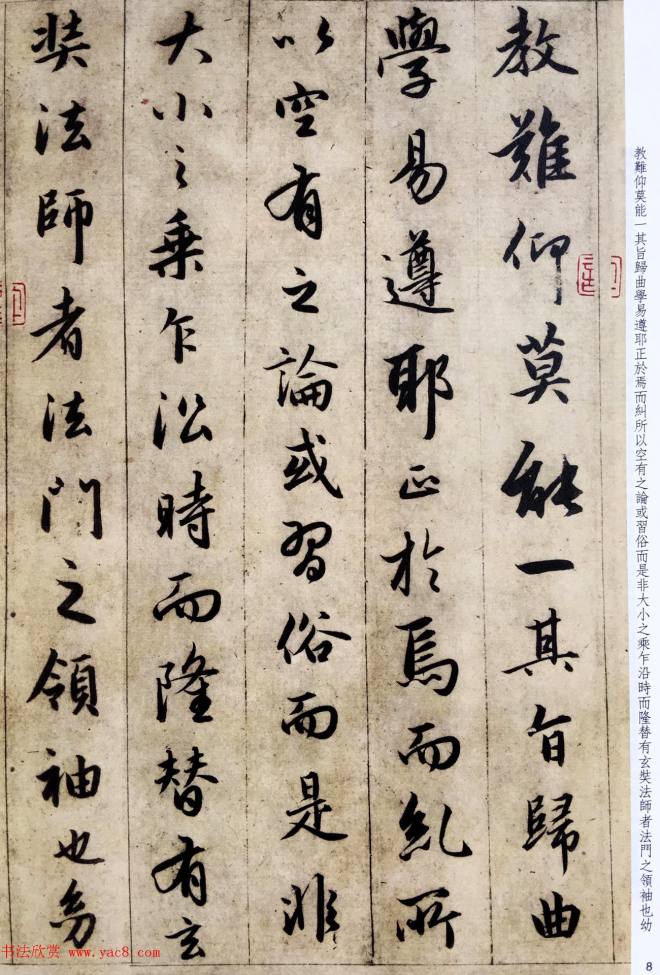 教難仰莫能一其旨歸曲學易遵耶正於焉而糾所以空有之論或習俗而是非大小之乘乍沿時而隆替有玄奘法師者法門之領袖也幼
教難仰莫能一其旨歸曲
學易遵耶正於焉而糺所
以空有之論或習俗而是非
大小之乘乍沿時而隆替有玄
奘法師者法門之領袖也幼
书法欣赏 www.yac8.com
8